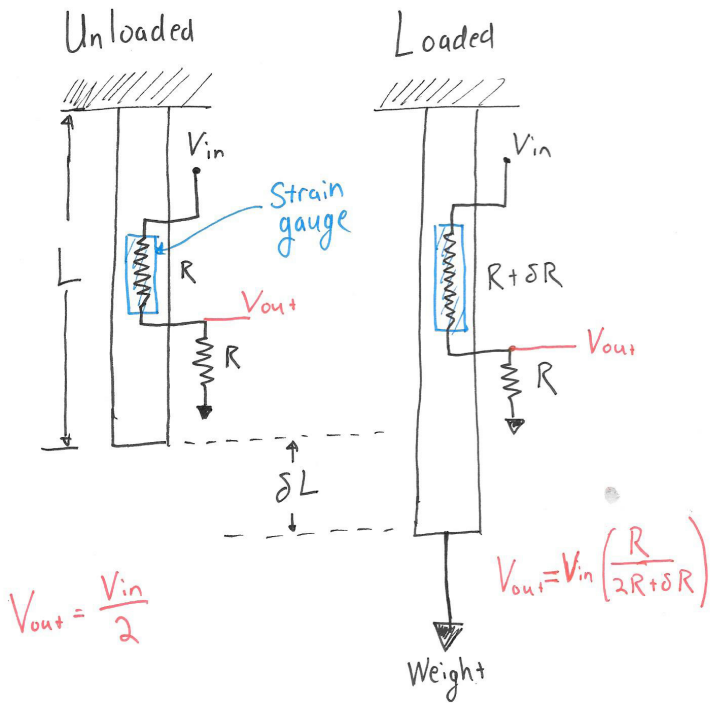 Unloaded
Loaded
Vin
Vin
Strain
gauge
L
R
R+δR
Vout
Vout
R
R
δL
Vout = Vin/2
Vout = Vin (R/(2R+δR))
Weight